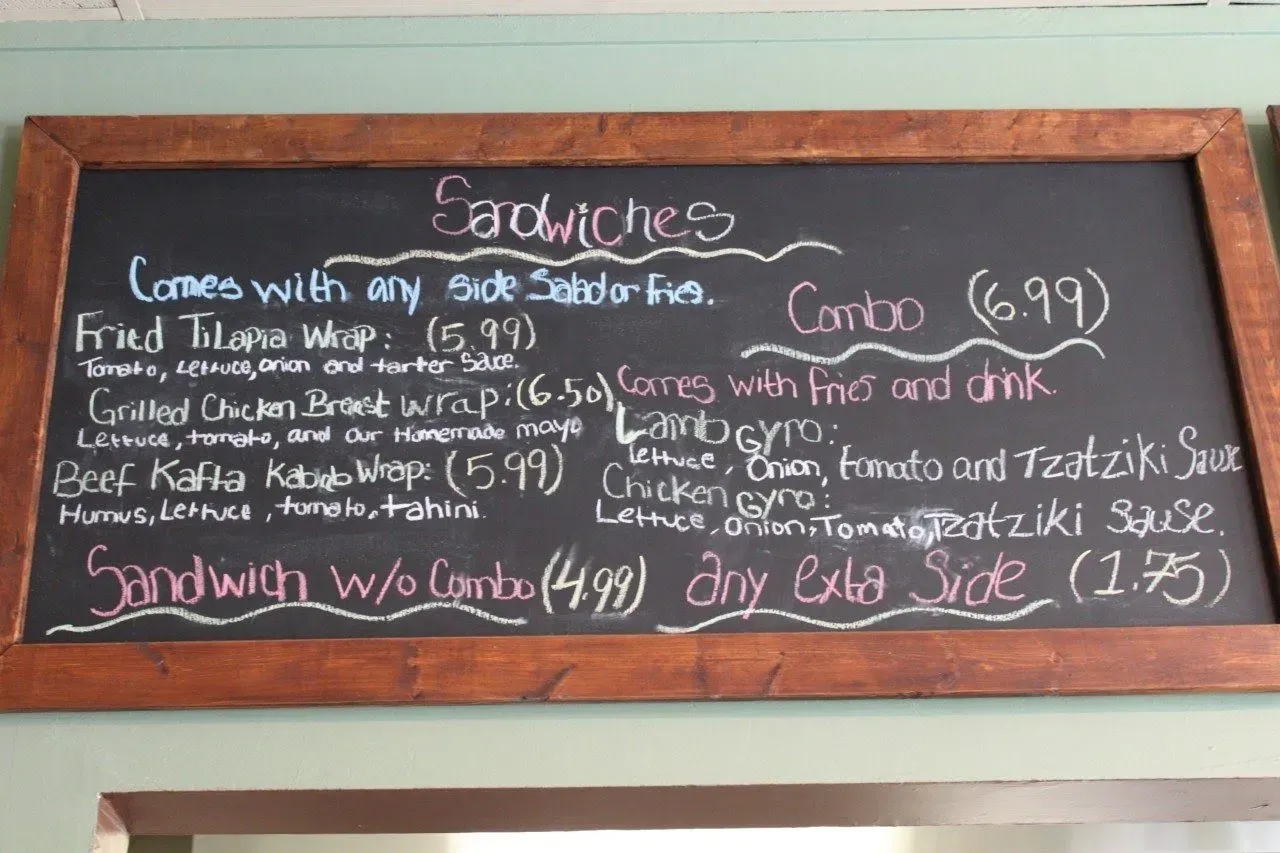 Sandwiches
Comes with any side Salad or Fries.
Fried TiLapia Wrap: (5.99)
Tomato, Lettuce, onion and tarter Sauce.
Grilled Chicken Breast Wrap: (6.50)
Lettuce, tomato, and our Homemade mayo
Beef Kafta Kabob Wrap: (5.99)
Humus, Lettuce, tomato, tahini.
Sandwich w/o Combo (4.99)
Combo (6.99)
Comes with fries and drink.
Lamb Gyro:
lettuce, Onion, tomato and Tzatziki Sause
Chicken Gyro:
Lettuce, onion, Tomato, Tzatziki Sause.
any exta Side (1.75)